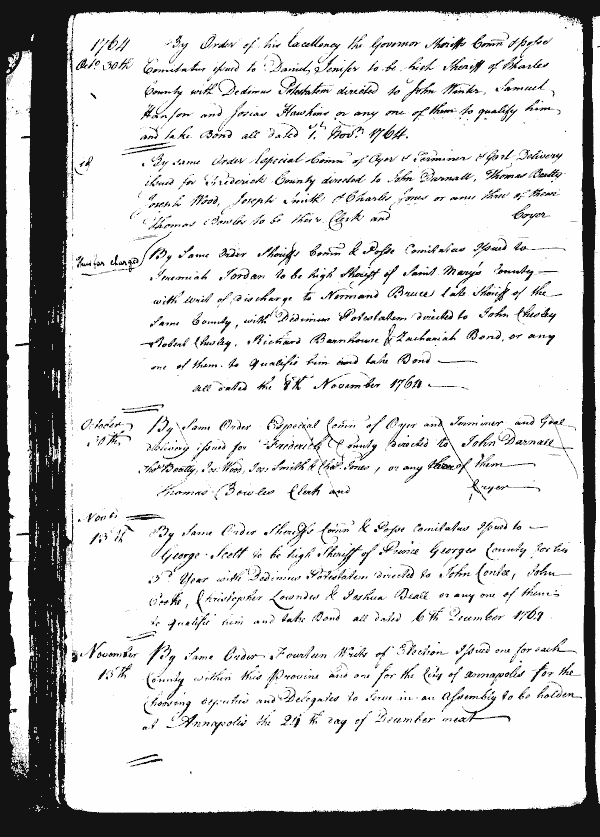 1764 By Order of his Excellency the Governor Sheriffs Comn & posse
Octo. 30th Comitatus issued to Daniel Jenifer to be high Sheriff of Charles
County with Dedimus Potestatem directed to John Winter, Samuel
Hanson and Josias Hawkins or any one of them to qualify him
and take Bond all dated 1st Novr. 1764.
By same Order Especial Comn of Oyer & Terminer & Goal Delivery
issued for Frederick County directed to John Darnall, Thomas Beatty
Joseph Wood, Joseph Smith & Charles Jones or any three of them
Thomas Bowles to be their Clerk and Cryer
Thus far charged By Same Order Sheriffs Comn & Posse Comitatus Issued to
Jeremiah Jordan to be high Sheriff of Saint Mary's County
with writ of discharge to Normand Bruce late Sheriff of the
Same County, with Dedimus Potestatem directed to John Chesley
Robert Chesley, Richard Barnhouse & Zachariah Bond, or any
one of them to Qualifie him and take Bond
all dated the 8th November 1764
October By Same Order Especial Comn of Oyer and Terminer and Goal
30th delivery issued for Frederick County directed to John Darnall
Thos Beatty, Jos. Wood, Jos. Smith & Chas. Jones, or any three of them
Thomas Bowles Clerk and Cryer
Novr.
15th By Same Order Sheriffs Comn & Posse Comitatus Issued to
George Scott to be high Sheriff of Prince Georges County for his
3d Year with Dedimus Potestatem directed to John Contee, John
Cooke, Christopher Lowndes & Joshua Beall or any one of them
to qualifie him and take Bond all dated 6th December 1764
November By Same Order Fourteen Writs of Election Issued one for each
15th County within this Province and one for the City of annapolis for the
Choosing deputies and Delegates to Serve in an Assembly to be holden
at Annapolis the 24th day of December next